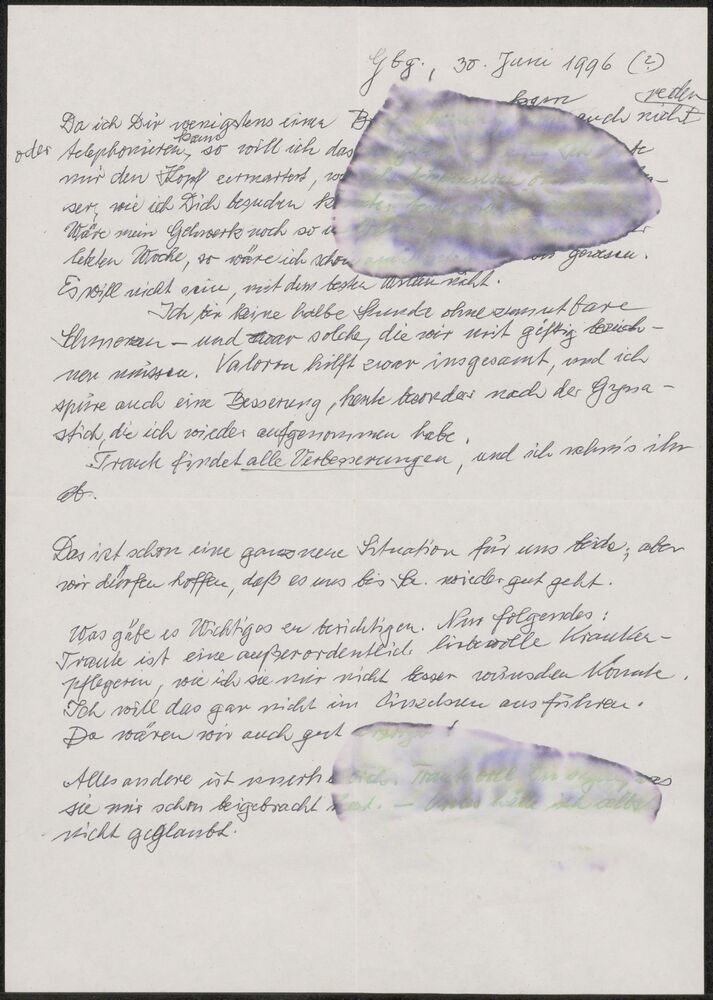 Gbg., 30. Juni 1996 (?)
Da ich Dir wenigstens einen kann auch nicht reden
oder telephonieren kann, so will ich das
mir den Kopf zermartert,
ser, wie ich Dich besuchen
Wäre mein Gehwerk noch so
letzten Woche, so wäre ich schon gewesen.
Es will nicht sein, mit dem besten Willen nicht.
Ich bin keine halbe Stunde ohne zumutbare
Schmerzen – und zwar solche, die wir mit giftig bezeich-
nen müssen. Valoron hilft zwar insgesamt, und ich
spüre auch eine Besserung, heute besonders nach der Gymna-
stick, die ich wieder aufgenommen habe.
Traute findet alle Verbesserungen, und ich nehm's ihr
ab.
Das ist schon eine ganz neue Situation für uns beide; aber
wir dürfen hoffen, daß es uns bis wieder gut geht.
Was gäbe es Wichtiges zu berichtigen. Nur folgendes:
Traute ist eine außerordentlich liebevolle Kranken-
pflegerin, wie ich sie mir nicht besser wünschen könnte.
Ich will das gar nicht im Einzelnen ausführen.
Da wären wir auch gut
Alles andere ist Traute was
sie mir schon beigebracht hat. – hätte ich selbst
nicht geglaubt.